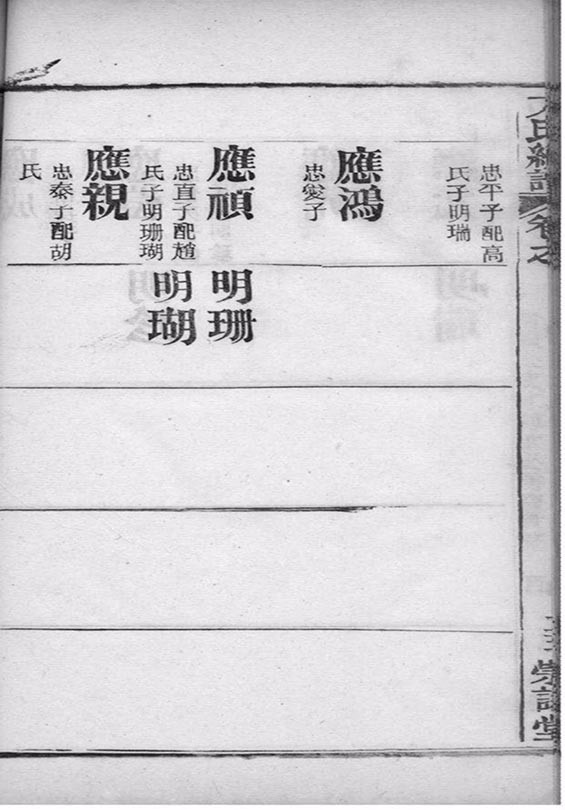 氏總譜
卷之
忠平子配高
氏子明瑞
應鴻
忠愛子
應禎
忠直子配趙
氏子明珊瑚
明珊
明瑚
應親
忠泰子配胡
氏